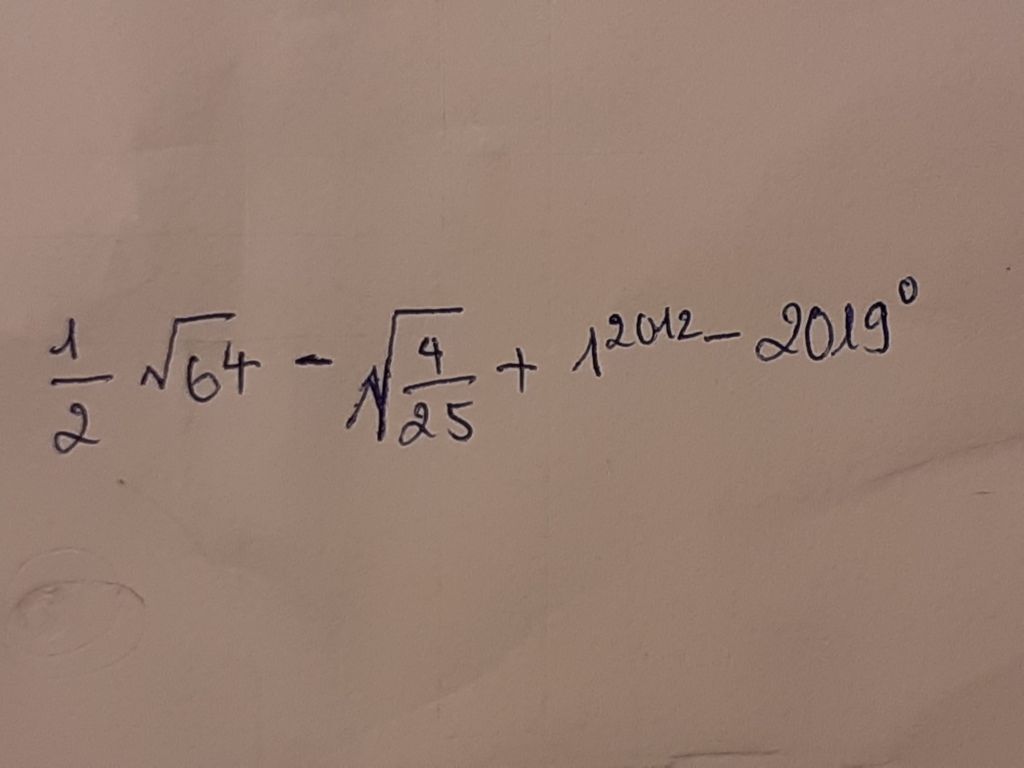 1/2 √64 - √(4/25) + 1^2012 - 2019^0